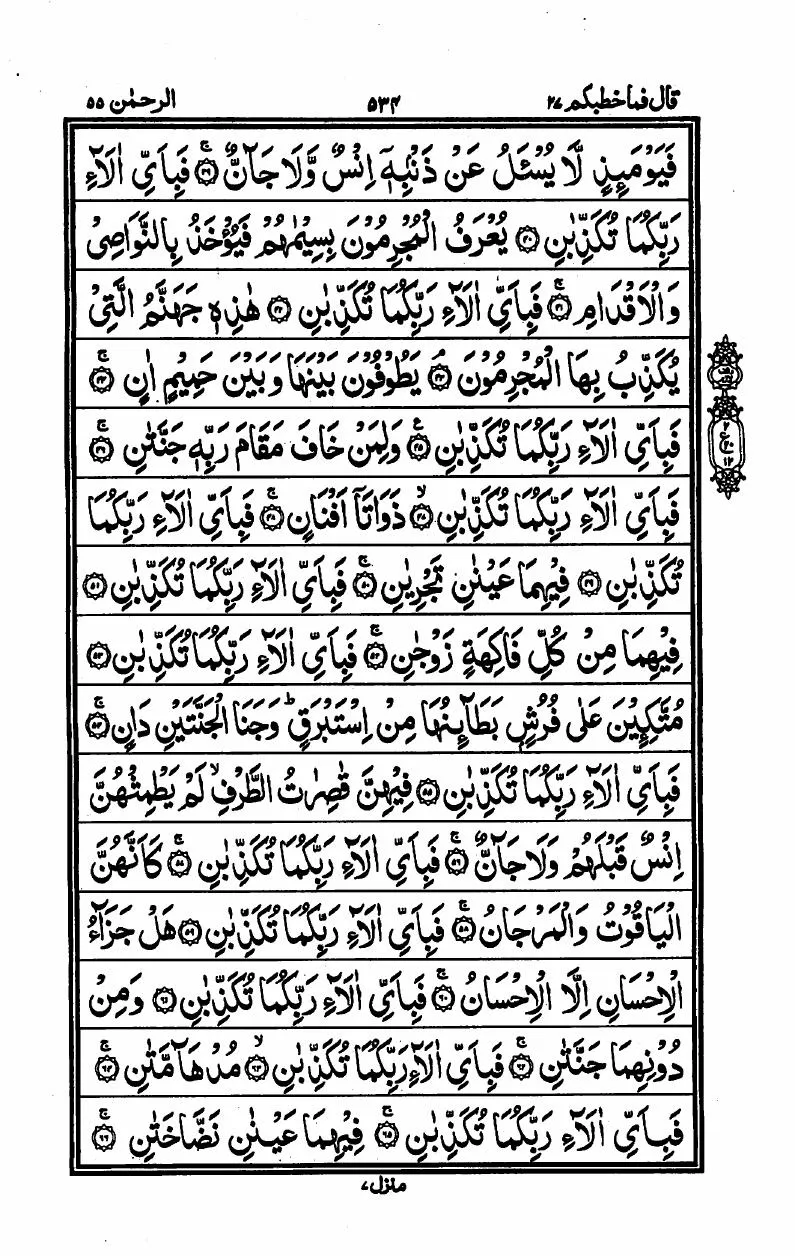 قال فما خطبكم ٢٧ ٥٣٤ الرحمٰن ٥٥
فَيَوْمَئِذٍ لَّا يُسْـَٔلُ عَنْ ذَنْۢبِهٖۤ اِنْسٌ وَّلَا جَآنٌّ ۚ‏﴿۳۹﴾ فَبِاَىِّ اٰلَاۤءِ
رَبِّكُمَا تُكَذِّبٰنِ ‏﴿۴۰﴾ يُعْرَفُ الْمُجْرِمُوْنَ بِسِيْمٰهُمْ فَيُؤْخَذُ بِالنَّوَاصِىْ
وَالْاَقْدَامِ ۚ‏﴿۴۱﴾ فَبِاَىِّ اٰلَاۤءِ رَبِّكُمَا تُكَذِّبٰنِ ‏﴿۴۲﴾ هٰذِهٖ جَهَنَّمُ الَّتِىْ
يُكَذِّبُ بِهَا الْمُجْرِمُوْنَ ۘ‏﴿۴۳﴾ يَطُوْفُوْنَ بَيْنَهَا وَبَيْنَ حَمِيْمٍ اٰنٍ ۚ‏﴿۴۴﴾
فَبِاَىِّ اٰلَاۤءِ رَبِّكُمَا تُكَذِّبٰنِ ‏﴿۴۵﴾ وَلِمَنْ خَافَ مَقَامَ رَبِّهٖ جَنَّتٰنِ ۚ‏﴿۴۶﴾
فَبِاَىِّ اٰلَاۤءِ رَبِّكُمَا تُكَذِّبٰنِ ۙ‏﴿۴۷﴾ ذَوَاتَاۤ اَفْنَانٍ ۚ‏﴿۴۸﴾ فَبِاَىِّ اٰلَاۤءِ رَبِّكُمَا
تُكَذِّبٰنِ ‏﴿۴۹﴾ فِيْهِمَا عَيْنٰنِ تَجْرِيٰنِ ۚ‏﴿۵۰﴾ فَبِاَىِّ اٰلَاۤءِ رَبِّكُمَا تُكَذِّبٰنِ ‏﴿۵۱﴾
فِيْهِمَا مِنْ كُلِّ فَاكِهَةٍ زَوْجٰنِ ۚ‏﴿۵۲﴾ فَبِاَىِّ اٰلَاۤءِ رَبِّكُمَا تُكَذِّبٰنِ ‏﴿۵۳﴾
مُتَّكِـِٕيْنَ عَلٰى فُرُشٍۭ بَطَاۤئِنُهَا مِنْ اِسْتَبْرَقٍ ؕ وَجَنَا الْجَنَّتَيْنِ دَانٍ ۚ‏﴿۵۴﴾
فَبِاَىِّ اٰلَاۤءِ رَبِّكُمَا تُكَذِّبٰنِ ‏﴿۵۵﴾ فِيْهِنَّ قٰصِرٰتُ الطَّرْفِ ۙ لَمْ يَطْمِثْهُنَّ
اِنْسٌ قَبْلَهُمْ وَلَا جَآنٌّ ۚ‏﴿۵۶﴾ فَبِاَىِّ اٰلَاۤءِ رَبِّكُمَا تُكَذِّبٰنِ ۚ‏﴿۵۷﴾ كَاَنَّهُنَّ
الْيَاقُوْتُ وَالْمَرْجَانُ ۚ‏﴿۵۸﴾ فَبِاَىِّ اٰلَاۤءِ رَبِّكُمَا تُكَذِّبٰنِ ‏﴿۵۹﴾ هَلْ جَزَآءُ
الْاِحْسَانِ اِلَّا الْاِحْسَانُ ۚ‏﴿۶۰﴾ فَبِاَىِّ اٰلَاۤءِ رَبِّكُمَا تُكَذِّبٰنِ ‏﴿۶۱﴾ وَمِنْ
دُوْنِهِمَا جَنَّتٰنِ ۚ‏﴿۶۲﴾ فَبِاَىِّ اٰلَاۤءِ رَبِّكُمَا تُكَذِّبٰنِ ۙ‏﴿۶۳﴾ مُدْهَآمَّتٰنِ ۚ‏﴿۶۴﴾
فَبِاَىِّ اٰلَاۤءِ رَبِّكُمَا تُكَذِّبٰنِ ۚ‏﴿۶۵﴾ فِيْهِمَا عَيْنٰنِ نَضَّاخَتٰنِ ۚ‏﴿۶۶﴾
منزل ٧